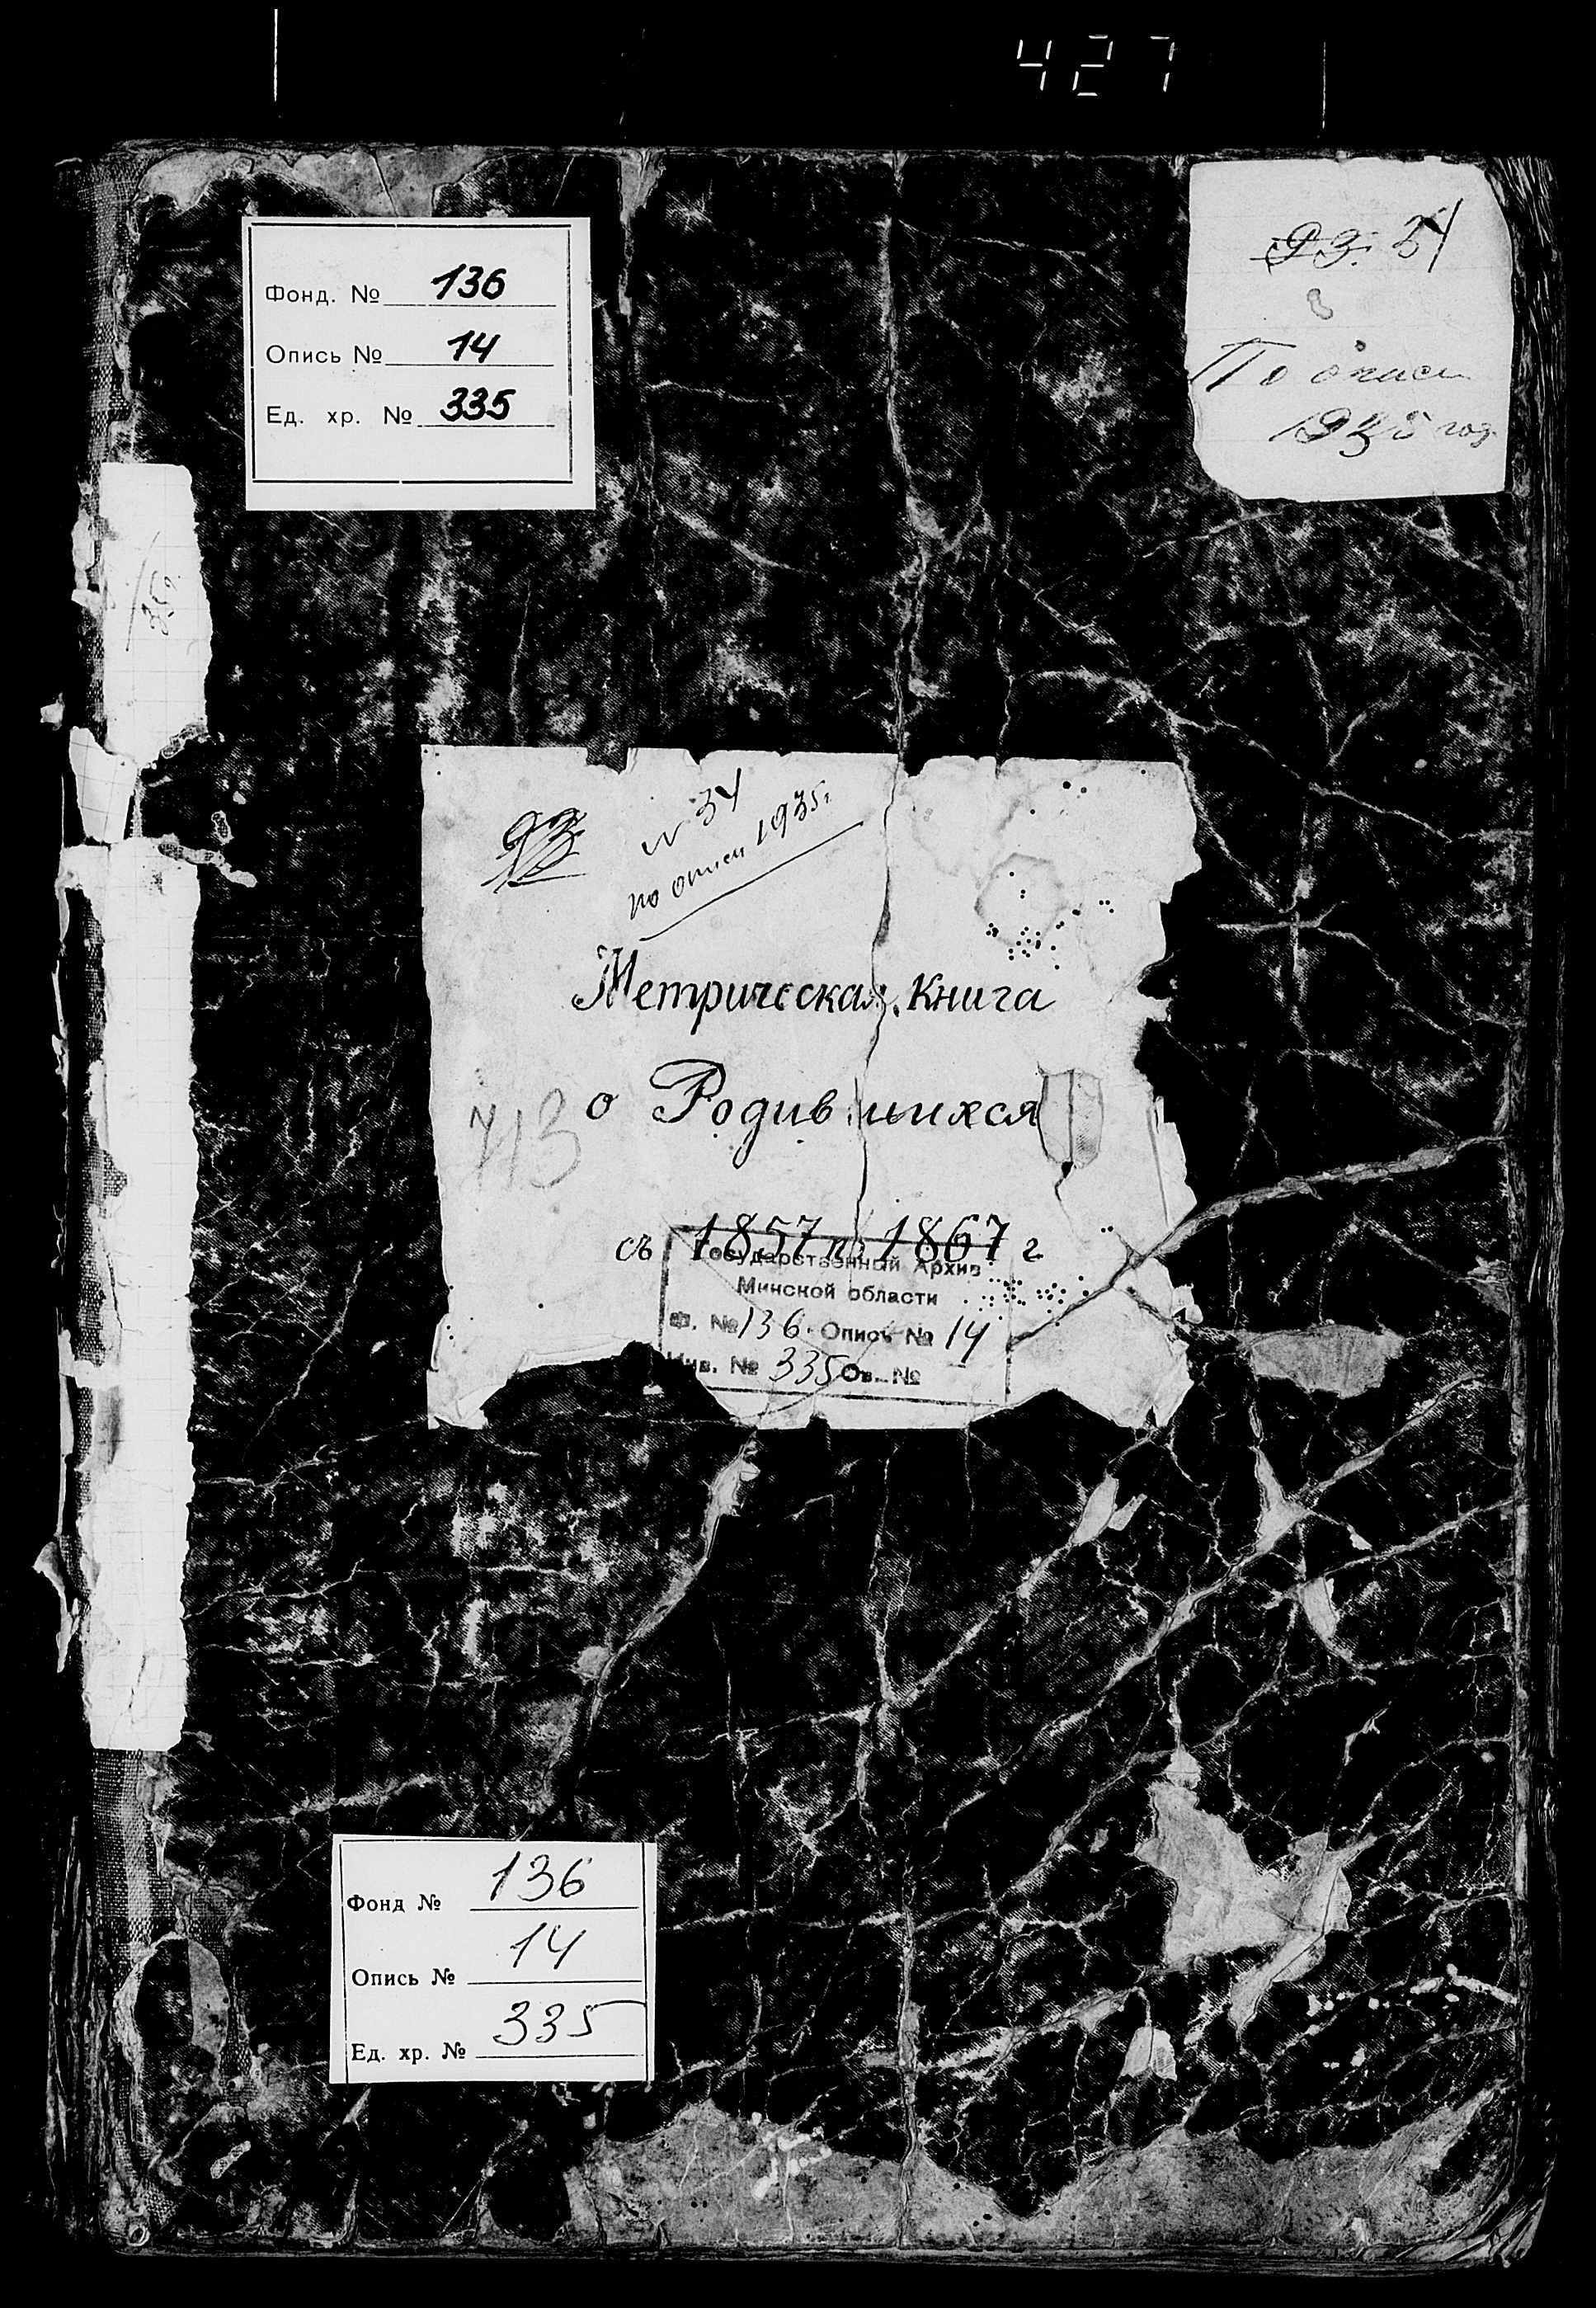 427
Фонд. № 136
Опись № 14
Ед. хр. № 335
93. 34
По описи
1935 год
35 г.
93
№ 34
по описи 1935 г.
Метрическая Книга
о Родившихся
713
съ 1857 по 1867 г
Государственный Архив
Минской области
Ф. № 136 Опись № 14
Инв. № 335 Св. №
Фонд № 136
Опись № 14
Ед. хр. № 335